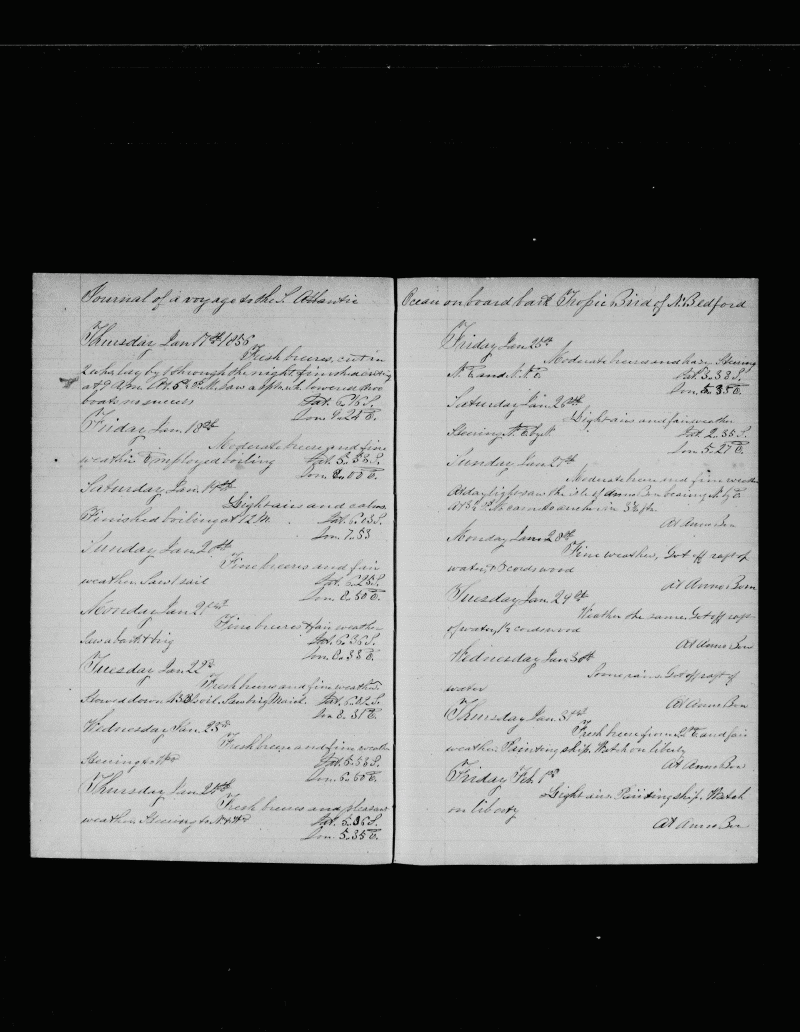 Journal of a voyage to the S. Atlantic
Thursday Jan 17th 1856
Fresh breezes, cut in
2 whales by 6 through the night
at 9 A.M. At 5 P.M. saw lowered two
boats no success Lat. 6.16 S.
Lon. 9.24 E.
Friday Jan. 18th
Moderate breeze and fine
weather. Employed boiling Lat. 5.58 S.
Lon. E.
Saturday Jan. 19th
Light airs and calms
Finished boiling at 12 M. Lat. 6.13 S.
Lon. 7.53
Sunday Jan. 20th
Fine breeze and fair
weather. Saw 1 sail Lat. 6.25 S.
Lon. 50 E.
Monday Jan. 21st
Fine breeze & fair weather
Saw a bark & brig Lat. 6.36 S.
Lon. 33 E.
Tuesday Jan 22d
Fresh breeze and fine weather
Stowed down oil. Saw brig Lat. 6. S.
Lon 31 E.
Wednesday Jan. 23d
Fresh breeze and fine weather
Steering to Lat. 5.56 S.
Lon. E.
Thursday Jan. 24th
Fresh breeze and pleasant
weather. Steering to Lat. 5.06 S.
Lon. 5.35 E.
Ocean on board bark Tropic Bird of N. Bedford
Friday Jan 25th
Moderate breeze and hazy. Steering
N.E. and N.N.E. Lat. 3.38 S.
Lon. 5.35 E.
Saturday Jan. 26th
Light airs and fair weather
Steering N.E. by N. Lat 2.35 S.
Lon. 5.27 E.
Sunday Jan. 27th
Moderate breeze and fine weather
At daylight saw the isle of Anno Bon bearing N. by E.
At P.M. came to anchor in fthm
At Anno Bon
Monday Jan. 28th
Fine weather. Got off raft of
water, & 3 cords wood
At Anno Bon
Tuesday Jan. 29th
Weather the same. Got off raft
of water, cords wood
At Anno Bon
Wednesday Jan. 30th
Some rain. Got off raft of
water
At Anno Bon
Thursday Jan. 31st
Fresh breeze from and fair
weather. Painting ship. Watch on liberty
At Anno Bon
Friday Feb. 1st
Light airs. Painting ship. Watch
on liberty
At Anno Bon